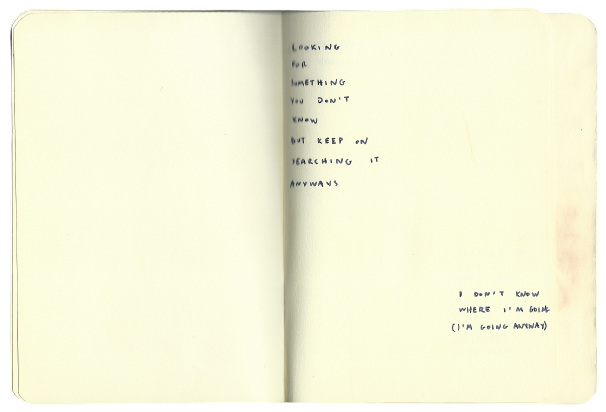 LOOKING
FOR
SOMETHING
YOU DON'T
KNOW
BUT KEEP ON
SEARCHING IT
ANYWAYS
I DON'T KNOW
WHERE I'M GOING
(I'M GOING ANYWAY)